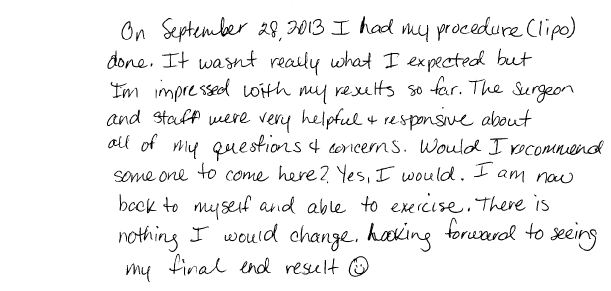 On September 28, 2013 I had my procedure (lipo)
done. It wasnt really what I expected but
I'm impressed with my results so far. The surgeon
and staff were very helpful + responsive about
all of my questions + concerns. Would I recommend
someone to come here? Yes, I would. I am now
back to myself and able to exercise. There is
nothing I would change. Looking forward to seeing
my final end result ☺